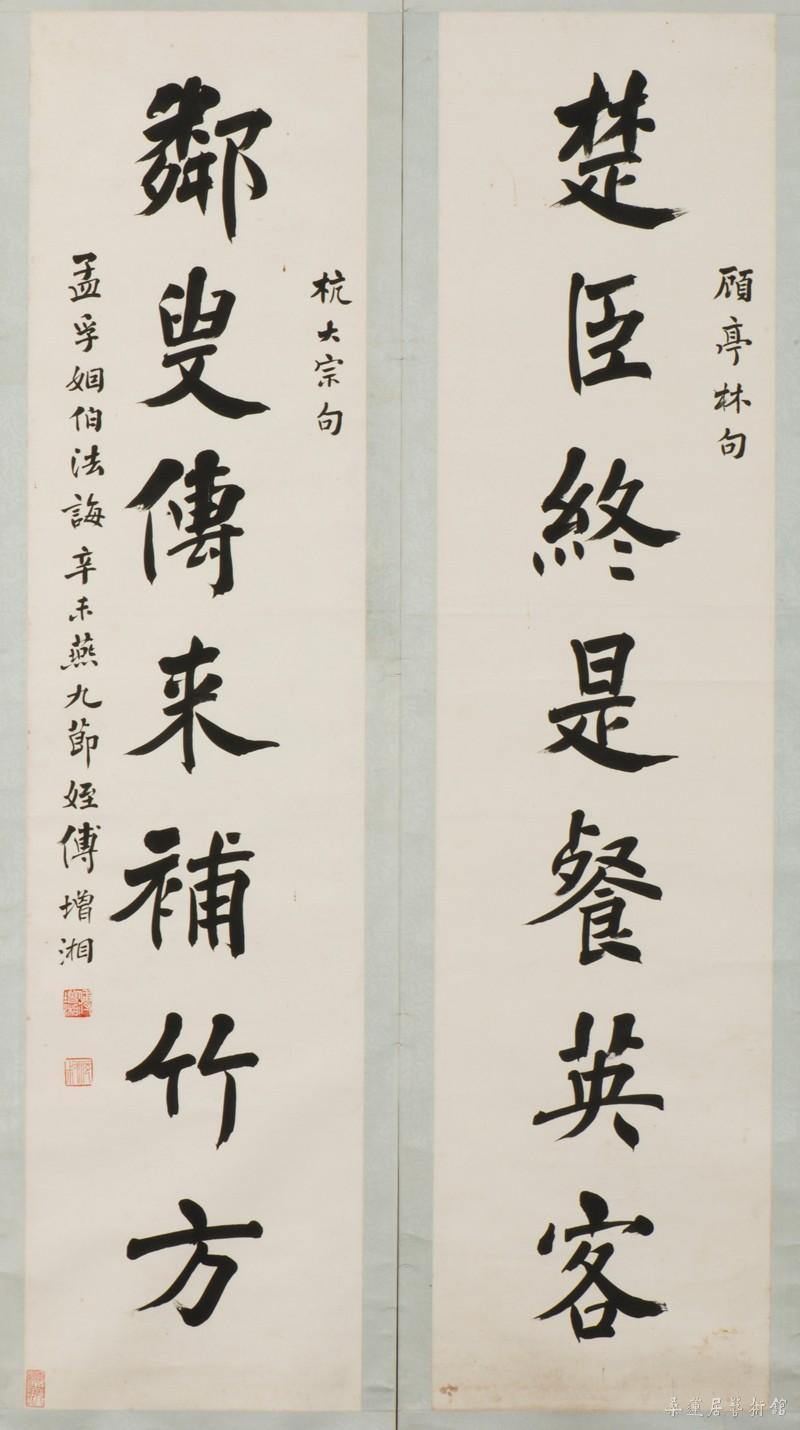 楚臣終是餐英客
顧亭林句
鄰叟傳来補竹方
杭大宗句
孟孚姻伯法誨辛未燕九節姪傅增湘
桑蓮居藝術館